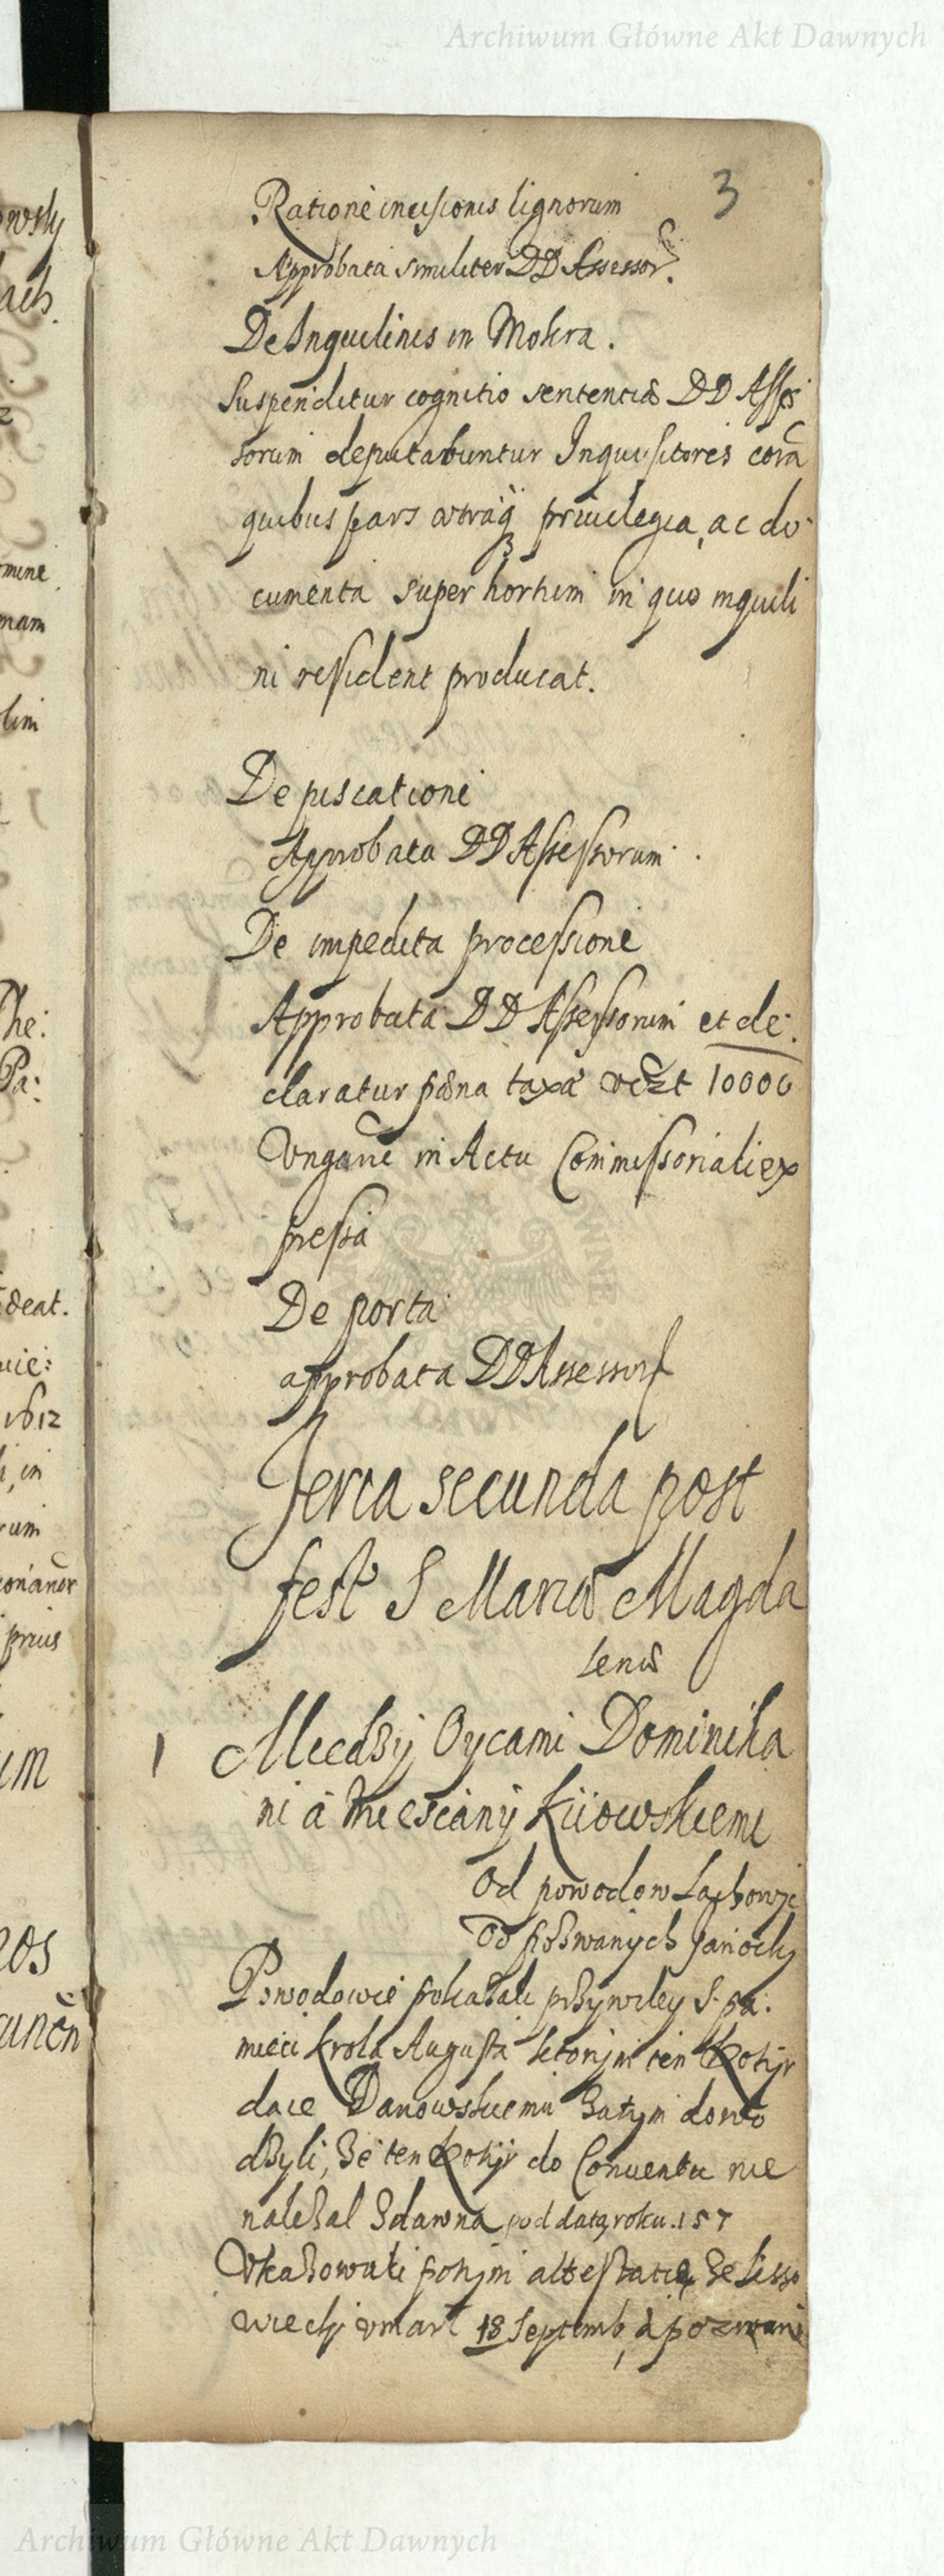 Archiwum Główne Akt Dawnych
3
Ratione incisionis lignorum
Approbata similiter DD Assessor.
De Inquilinis in Mokra.
Suspenditur cognitio sententiæ DD Asses
sorum deputabuntur Inquisitores corã
quibus pars utraq privilegia, ac do
cumenta super hortum in quo inquili
ni resident producat.
De piscatione
Approbata DD Assessorum.
De impedita processione
Approbata DD Assessorum et de:
claratur pœna taxa vdzt 10000
Ungar in Actu Commissoriali ex
pressa
De porta
approbata DD Assessor
Feria secunda post
fest S Mariæ Magda
lenæ
1 Miedzÿ Oycami Dominika
ni a miescanÿ Kiiowskiemi
Od powodow
Od pozwanych Janocky
Powodowie pokazali przywiley S. pa:
mieci krola Augusta ktorym ten
daie Danowskiemu zatym dowo
dzyli, ze ten do Conventu nie
nalezal zdawna pod datą roku 157
Ukazowali potym attestatią ze Lisso
wiecky umarł 18 Septemb, a pozwani
Archiwum Główne Akt Dawnych